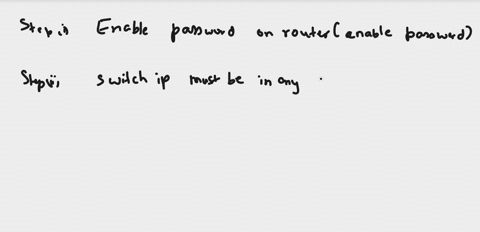 Step i) Enable password on router (enable password)
Step ii) switch ip must be in any